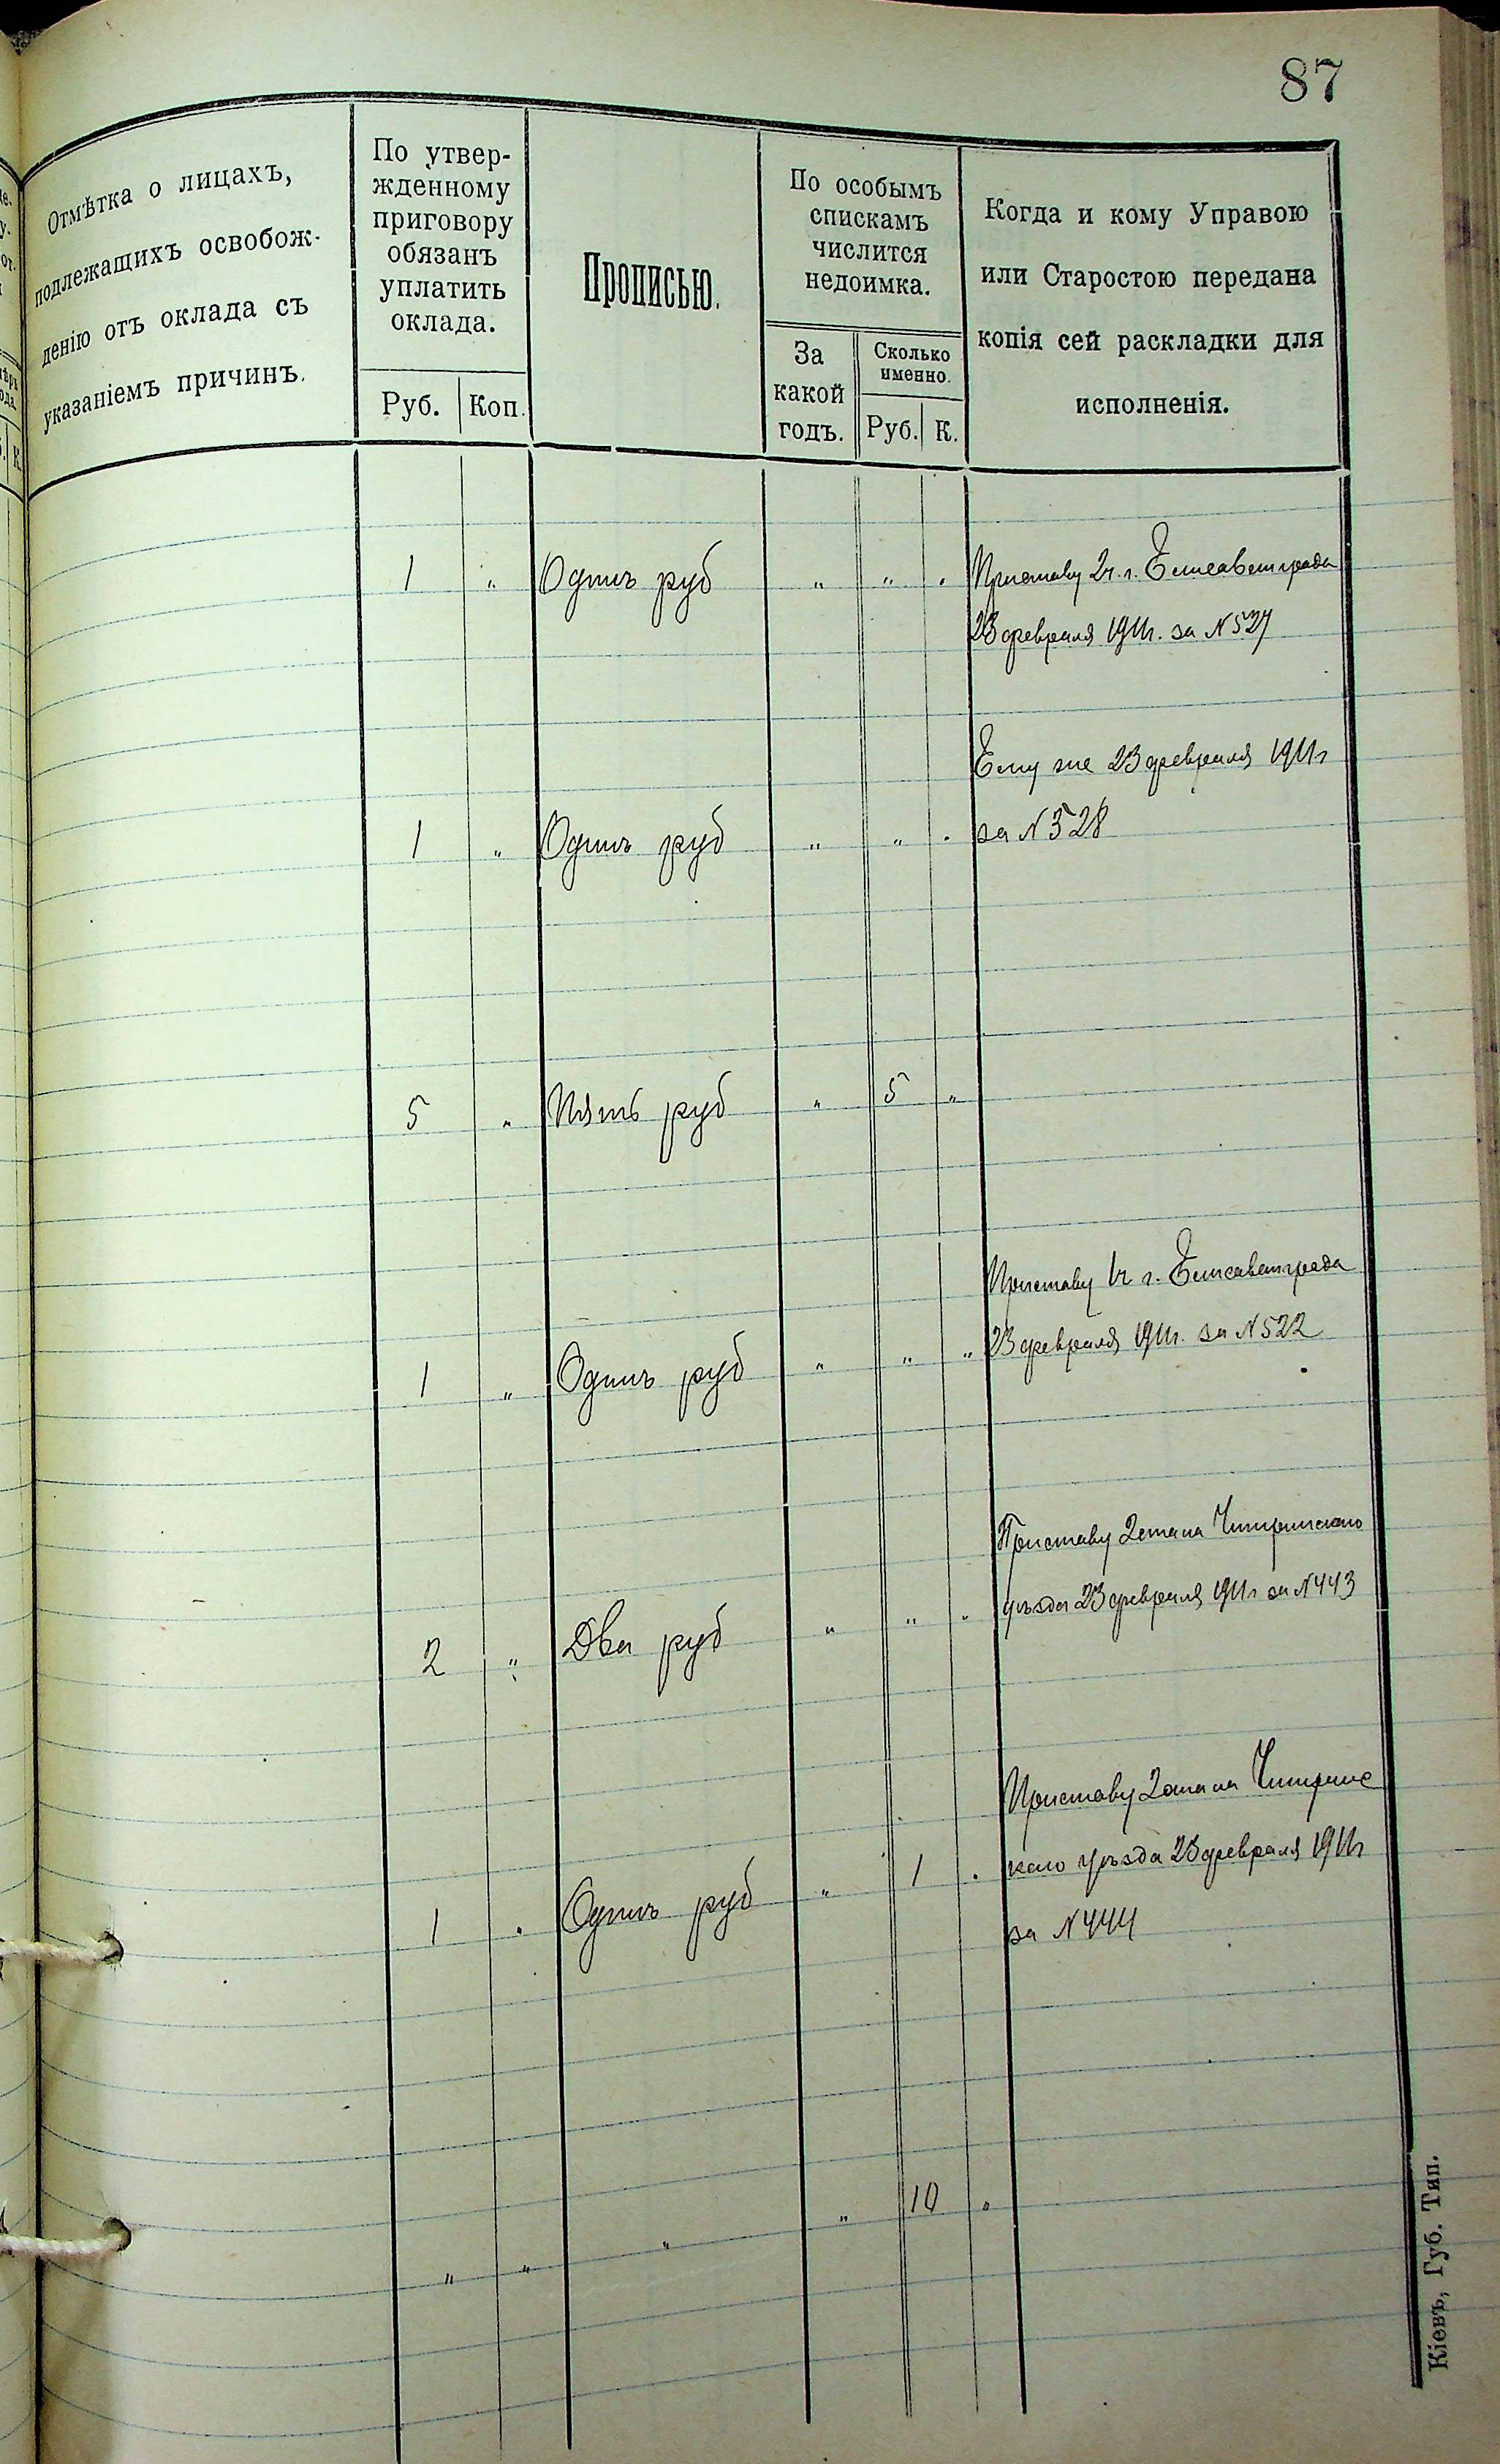 87
Отмѣтка о лицахъ,
подлежащихъ освобож-
денію отъ оклада съ
указаніемъ причинъ.
По утвер-
жденному
приговору
обязанъ
уплатить
оклада.
Руб. Коп.
Прописью.
По особымъ
спискамъ
числится
недоимка.
За
какой
годъ.
Сколько
именно.
Руб. К.
Когда и кому Управою
или Старостою передана
копія сей раскладки для
исполненія.
1 " Одинъ руб " " " Приставу 2 ч. г. Елисаветграда
23 февраля 1911 г. за N 527
Ему же 23 февраля 1911 г
1 " Одинъ руб " " " за N 528
5 " Пять руб " 5 "
Приставу 1 ч г. Елисаветграда
1 " Одинъ руб " " " 23 февраля 1911 г. за N 522
Приставу 2 стана Чигиринскаго
2 " Два руб " " " уѣзда 23 февраля 1911 г за N 443
Приставу 2 стана Чигиринс
1 " Одинъ руб " 1 " каго уѣзда 23 февраля 1911 г
за N 444
" " " " 10 "
Кіевъ, Губ. Тип.